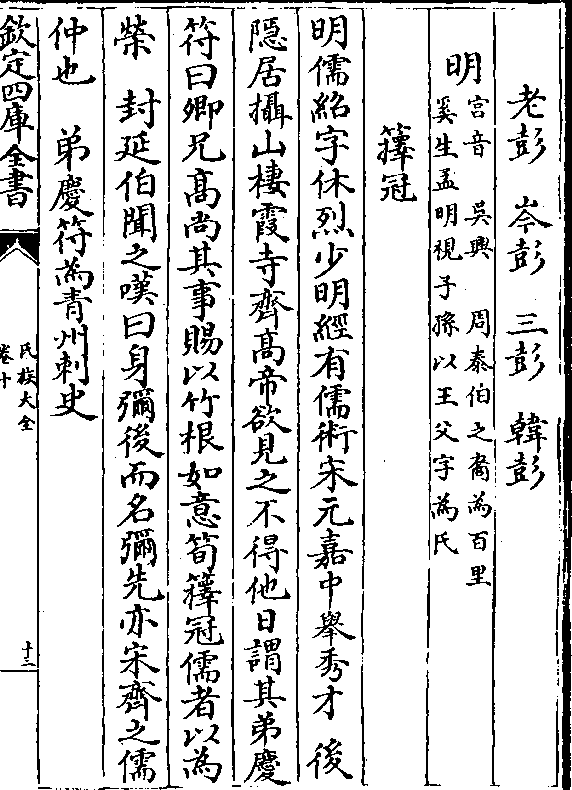 老彭　岑彭　三彭　韓彭
明　宫音　吳興　周泰伯之裔為百里
奚生孟明視子孫以王父字為氏
籜冠
明儒紹字休烈少明經有儒術宋元嘉中舉秀才　後
隠居攝山棲霞寺齊髙帝欲見之不得他日謂其弟慶
符曰卿兄髙尚其事賜以竹根如意筍籜冠儒者以為
榮　封延伯聞之嘆曰身彌後而名彌先亦宋齊之儒
仲也　弟慶符為青州刺史
欽定四庫全書
氏族大全
卷十
十三